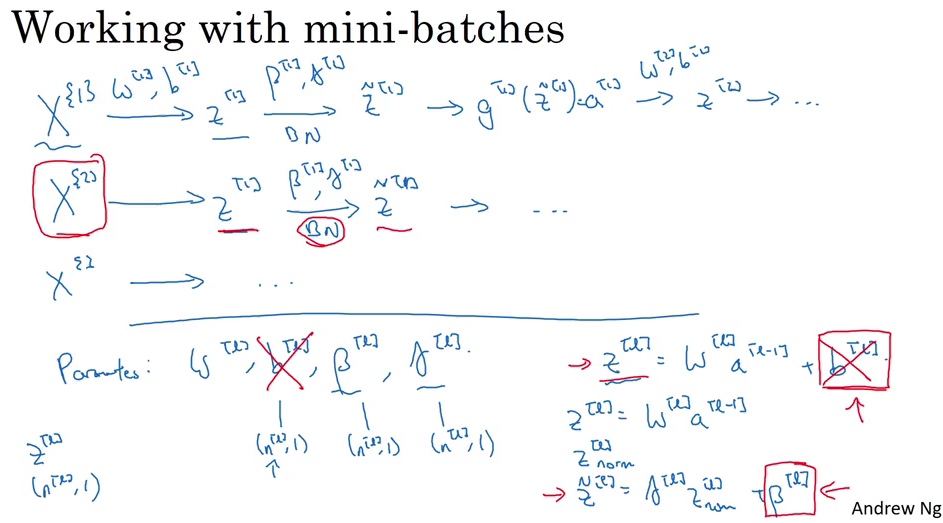 Working with mini-batches
X^{1} W^[1], b^[1] → z^[1] β^[1], γ^[1] → BN z̃^[1] → g^[1](z̃^[1]) = a^[1] → W^[2], b^[2] z^[2] → ...
X^{2} → z^[1] β^[1], γ^[1] → BN z̃^[1] → ...
X^{} → ...
Parameters: W^[l], b^[l], β^[l], γ^[l].
(n^[l], 1) (n^[l], 1) (n^[l], 1)
z^[l]
(n^[l], 1)
→ z^[l] = W^[l] a^[l-1] + b^[l].
z^[l] = W^[l] a^[l-1]
z^[l] norm
→ z̃^[l] = γ^[l] z^[l] norm + β^[l] ←
Andrew Ng